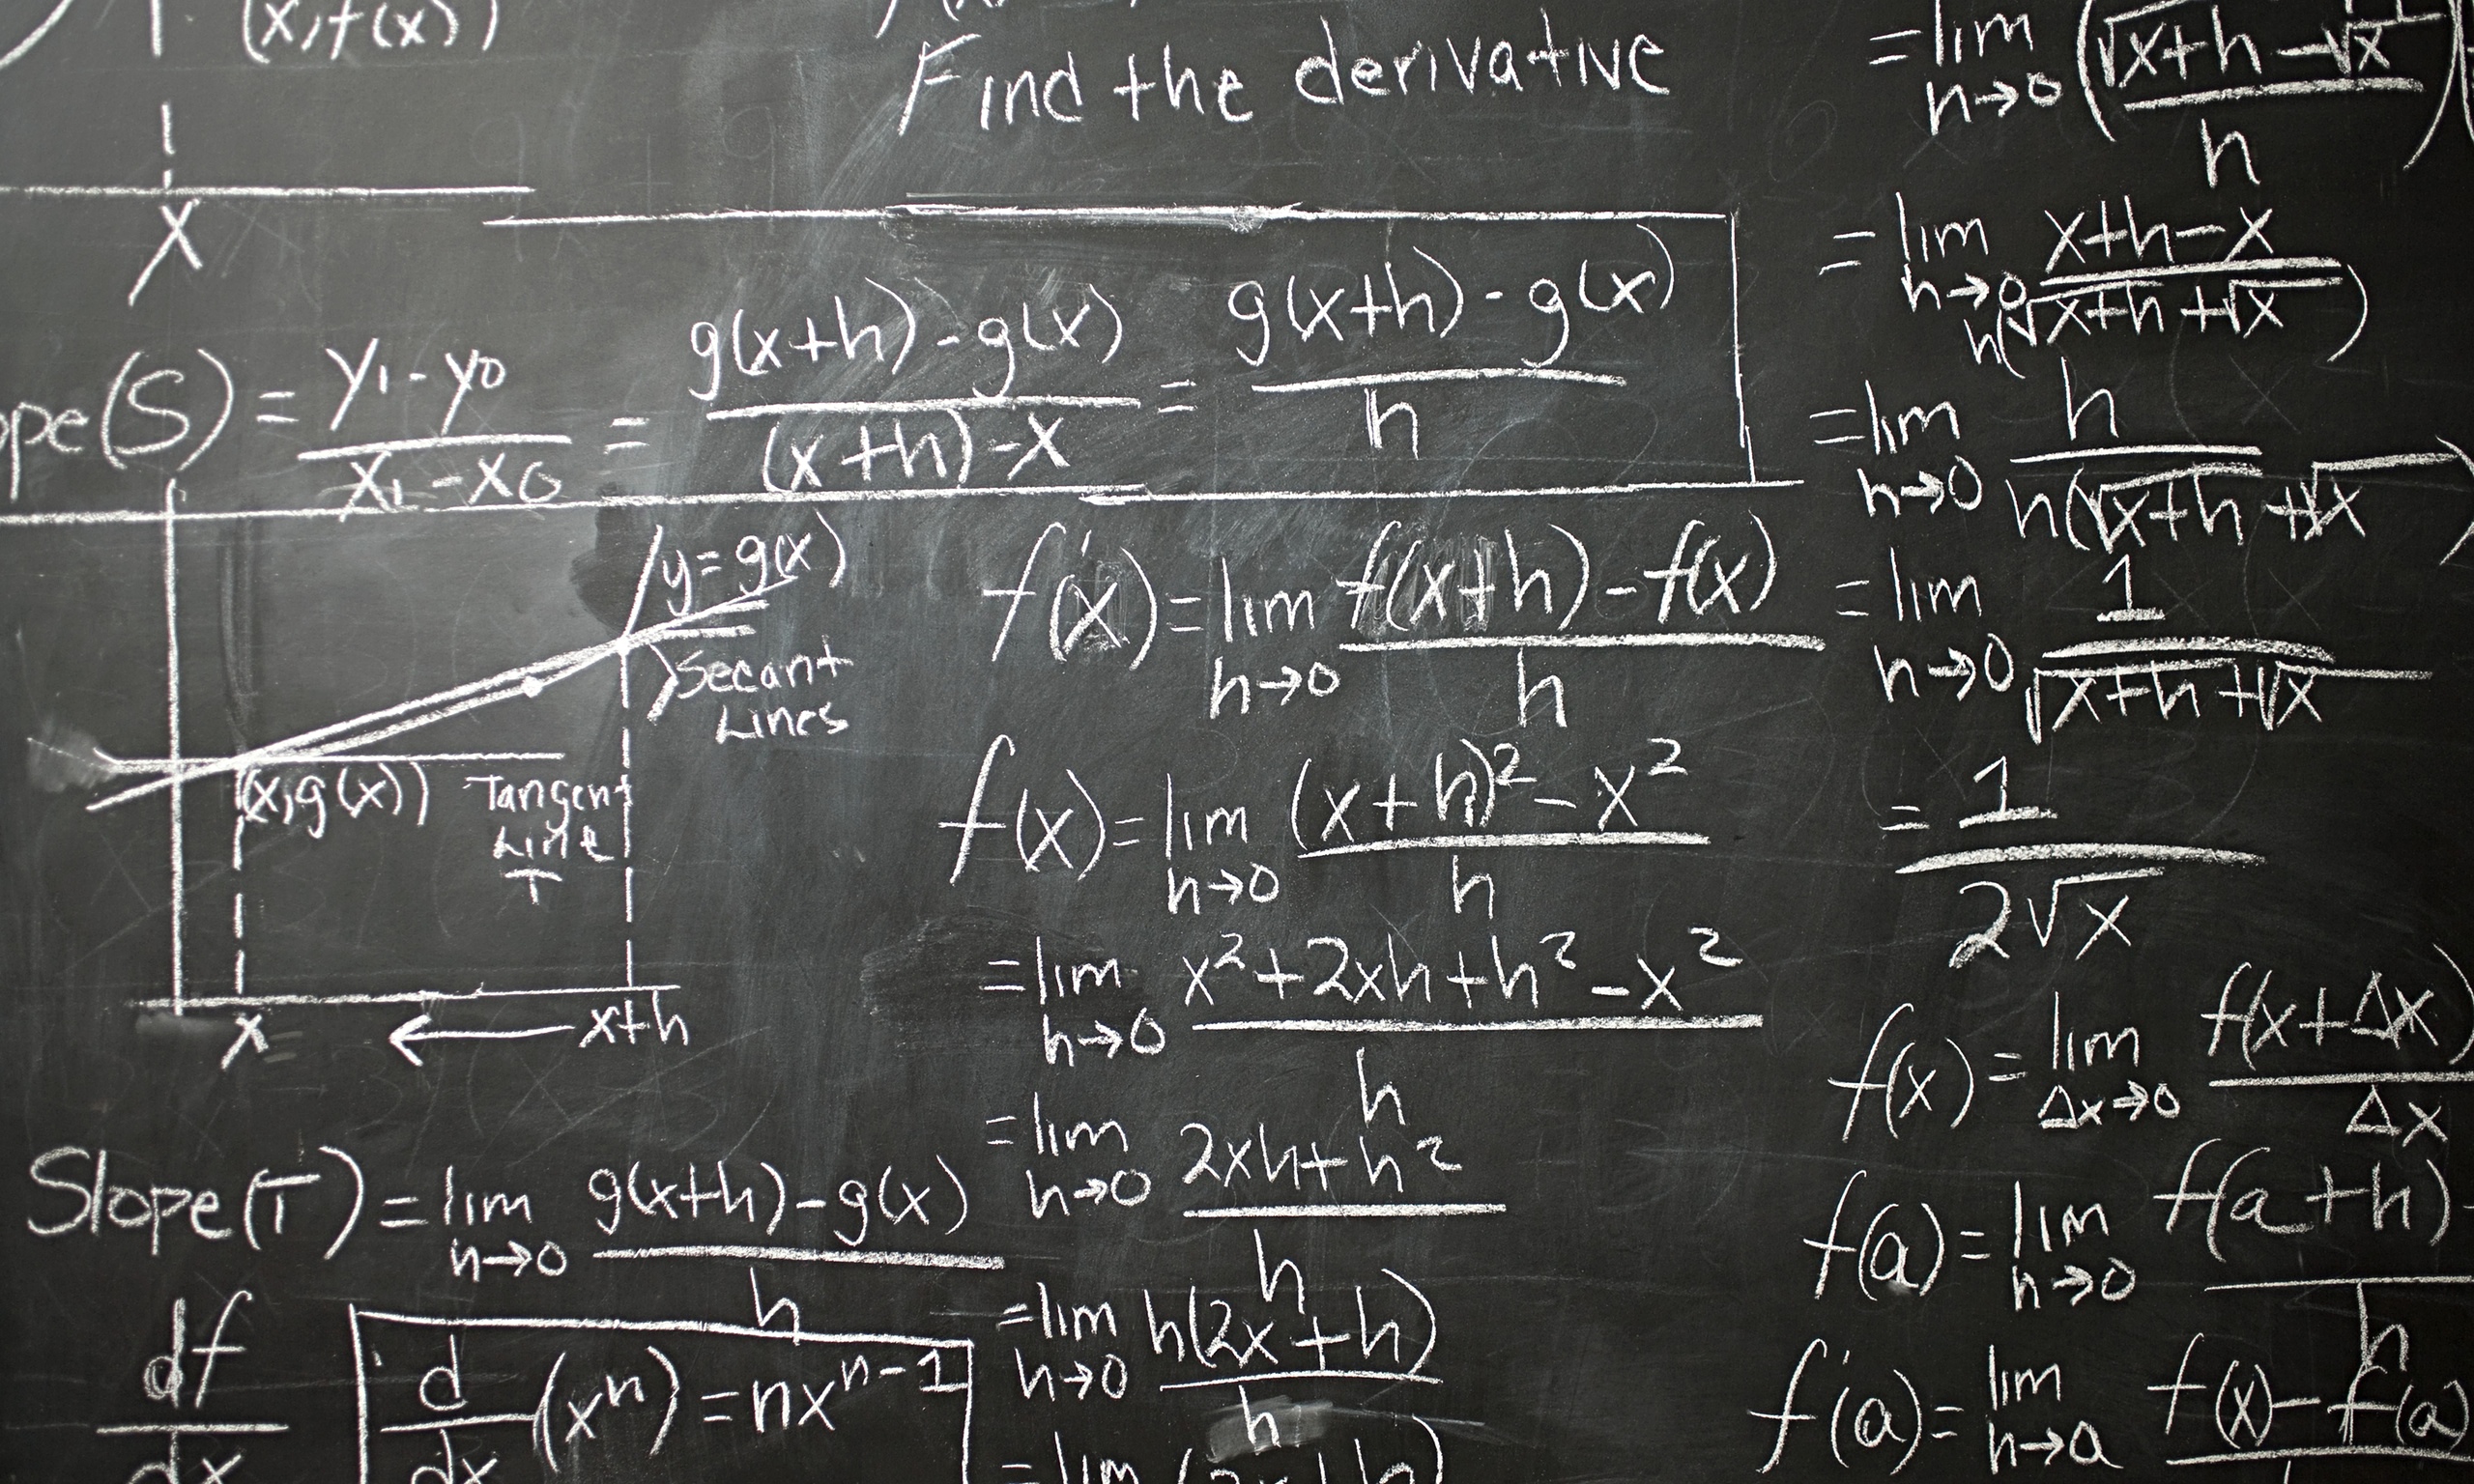 (x,f(x))
x
Find the derivative
ope(S) = y₁-y₀ / x₁-x₀ = g(x+h)-g(x) / (x+h)-x = g(x+h)-g(x) / h
y=g(x)
Secant
Lines
(x,g(x))
Tangent
Line
T
x ← x+h
Slope(T) = lim h→0 g(x+h)-g(x) / h
df / dx
d / dx (xⁿ) = nxⁿ⁻¹
f'(x) = lim h→0 f(x+h)-f(x) / h
f(x) = lim h→0 (x+h)²-x² / h
= lim h→0 x²+2xh+h²-x² / h
= lim h→0 2xh+h² / h
= lim h→0 h(2x+h) / h
= lim (2x+h)
= lim h→0 (√x+h -√x / h)
= lim h→0 x+h-x / h(√x+h +√x)
= lim h→0 h / h(√x+h +√x)
= lim h→0 1 / √x+h +√x
= 1 / 2√x
f(x) = lim Δx→0 f(x+Δx) / Δx
f(a) = lim h→0 f(a+h)- / h
f'(a) = lim h→a f(x)-f(a)